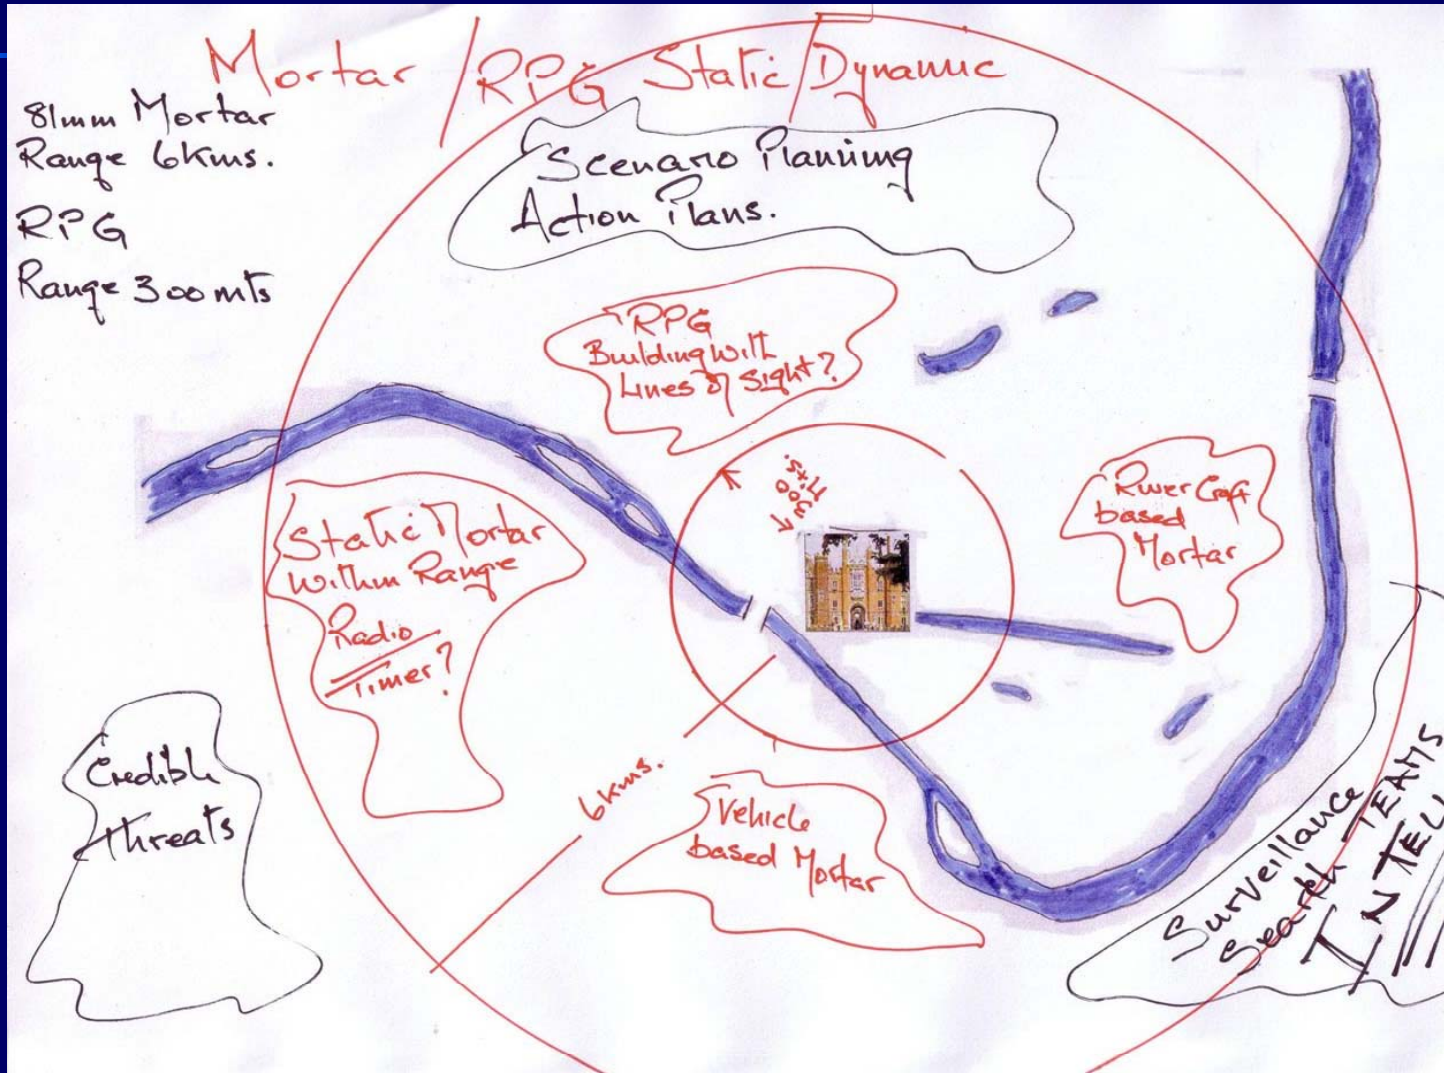 Mortar / RPG Static / Dynamic
81mm Mortar
Range 6Kms.
RPG
Range 300mts
Scenario Planning
Action Plans.
RPG
Building with
Lines of Sight?
300
Mts.
River Craft
based
Mortar
Static Mortar
Within Range
Radio
Timer?
Credible
Threats
6kms.
Vehicle
based Mortar
Surveillance
Search TEAMS
INTEL